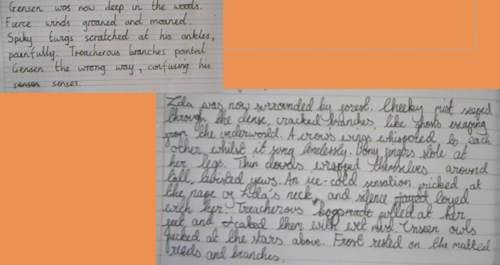 Gensen was now deep in the woods.
Fierce winds groaned and moaned.
Spiky twigs scratched at his ankles,
painfully. Treacherous branches pointed
Gensen the wrong way, confusing his
senses.
was now surrounded by forest. Cheeky mist seeped
through the dense, cracked branches, like ghosts escaping
from the underworld. A crows wings whispered to each
other, whilst it sung endlessly. Bony fingers stole at
her legs. Thin clouds wrapped themselves around
tall, twisted yews. An ice-cold sensation pricked at
the nape of neck, and silence toyed
with her. Treacherous pulled at her
feet and caked them with wet mud. Unseen owls
pecked at the stars above. Frost rested on the matted
and branches.